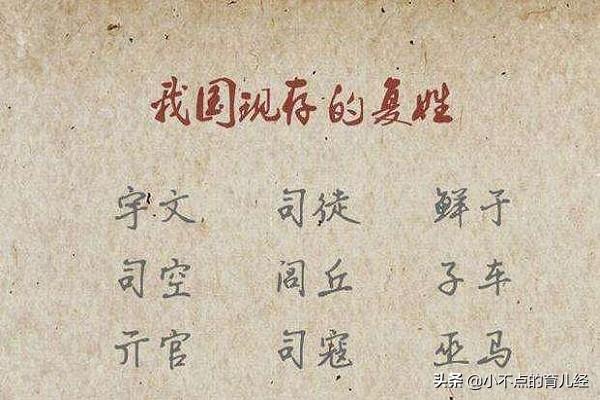 我国现存的复姓
宇文 司徒 鲜于
司空 闾丘 子车
亓官 司寇 巫马
头条 @小不点的育儿经